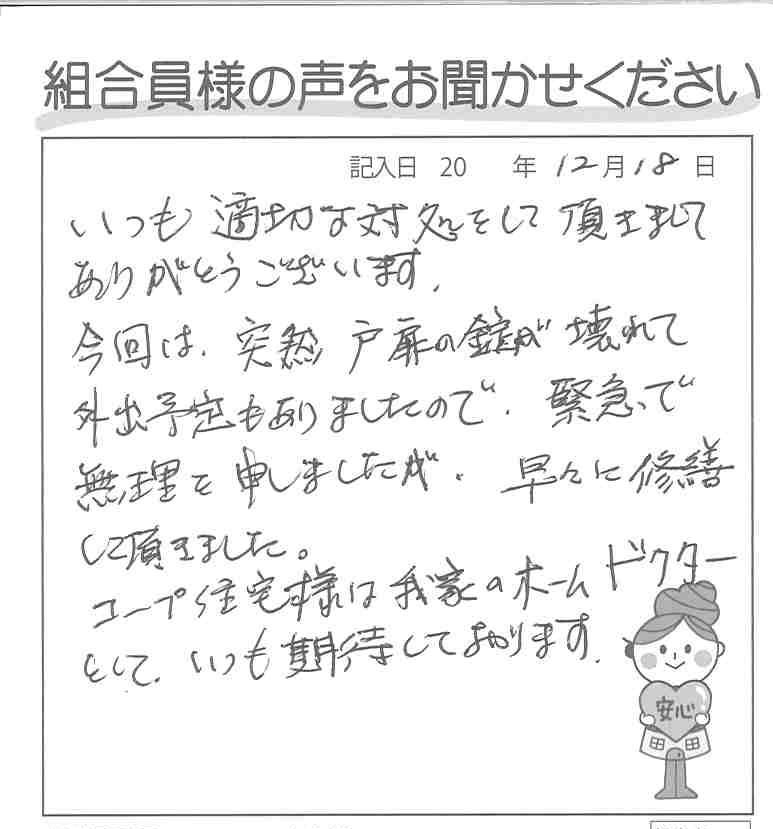 組合員様の声をお聞かせください
記入日 20 年 12月18日
いつも適切な対処をして頂きまして
ありがとうございます.
今回は、突然戸扉の錠が壊れて
外出予定もありましたので、緊急で
無理を申しましたが、早々に修繕
して頂きました。
コープ住宅様は我家のホームドクター
として、いつも期待しております.
安心